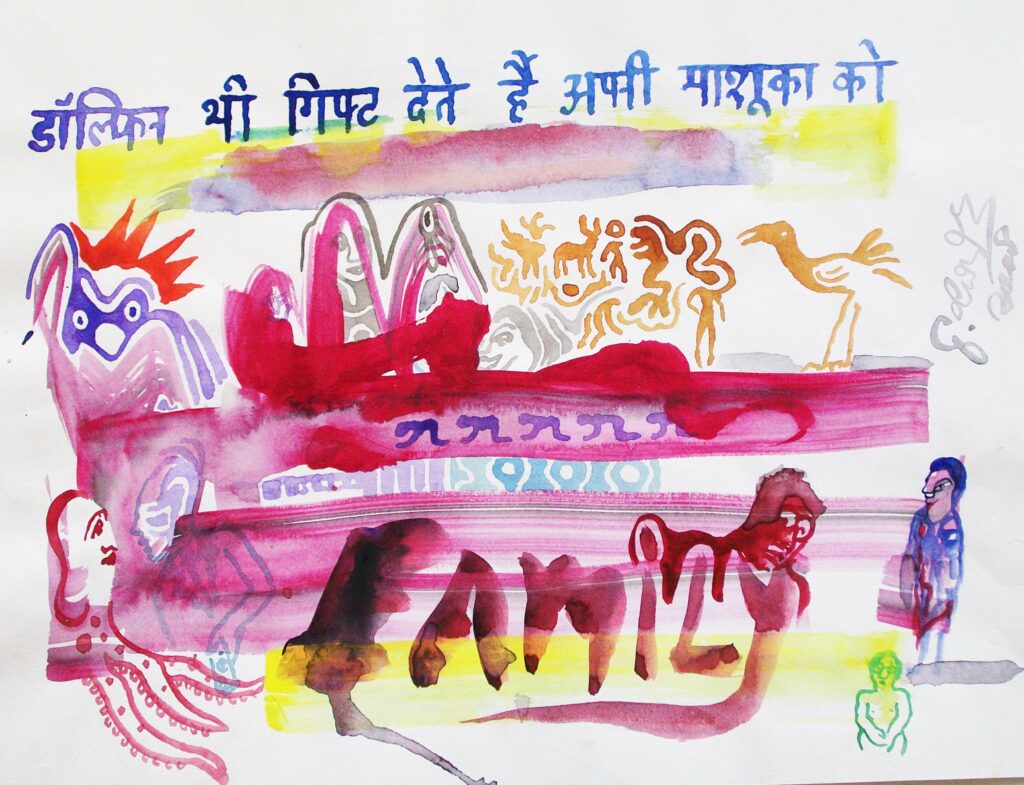 डॉल्फिन भी गिफ्ट देते हैं अपनी माशूका को
FAMILY